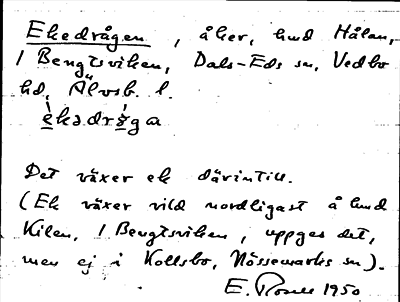 Ekedrågen, åker, hmd Hålan,
1 Bengtsviken, Dals-Eds sn, Vedbo
hd, Älvsb. l.
èkadrága
Det växer ek därintill.
(Ek växer vild nordligast å hmd
Kilen, 1 Bengtsviken, uppges det,
men ej i Kollsbo, Nössemarks sn).
E. 1950